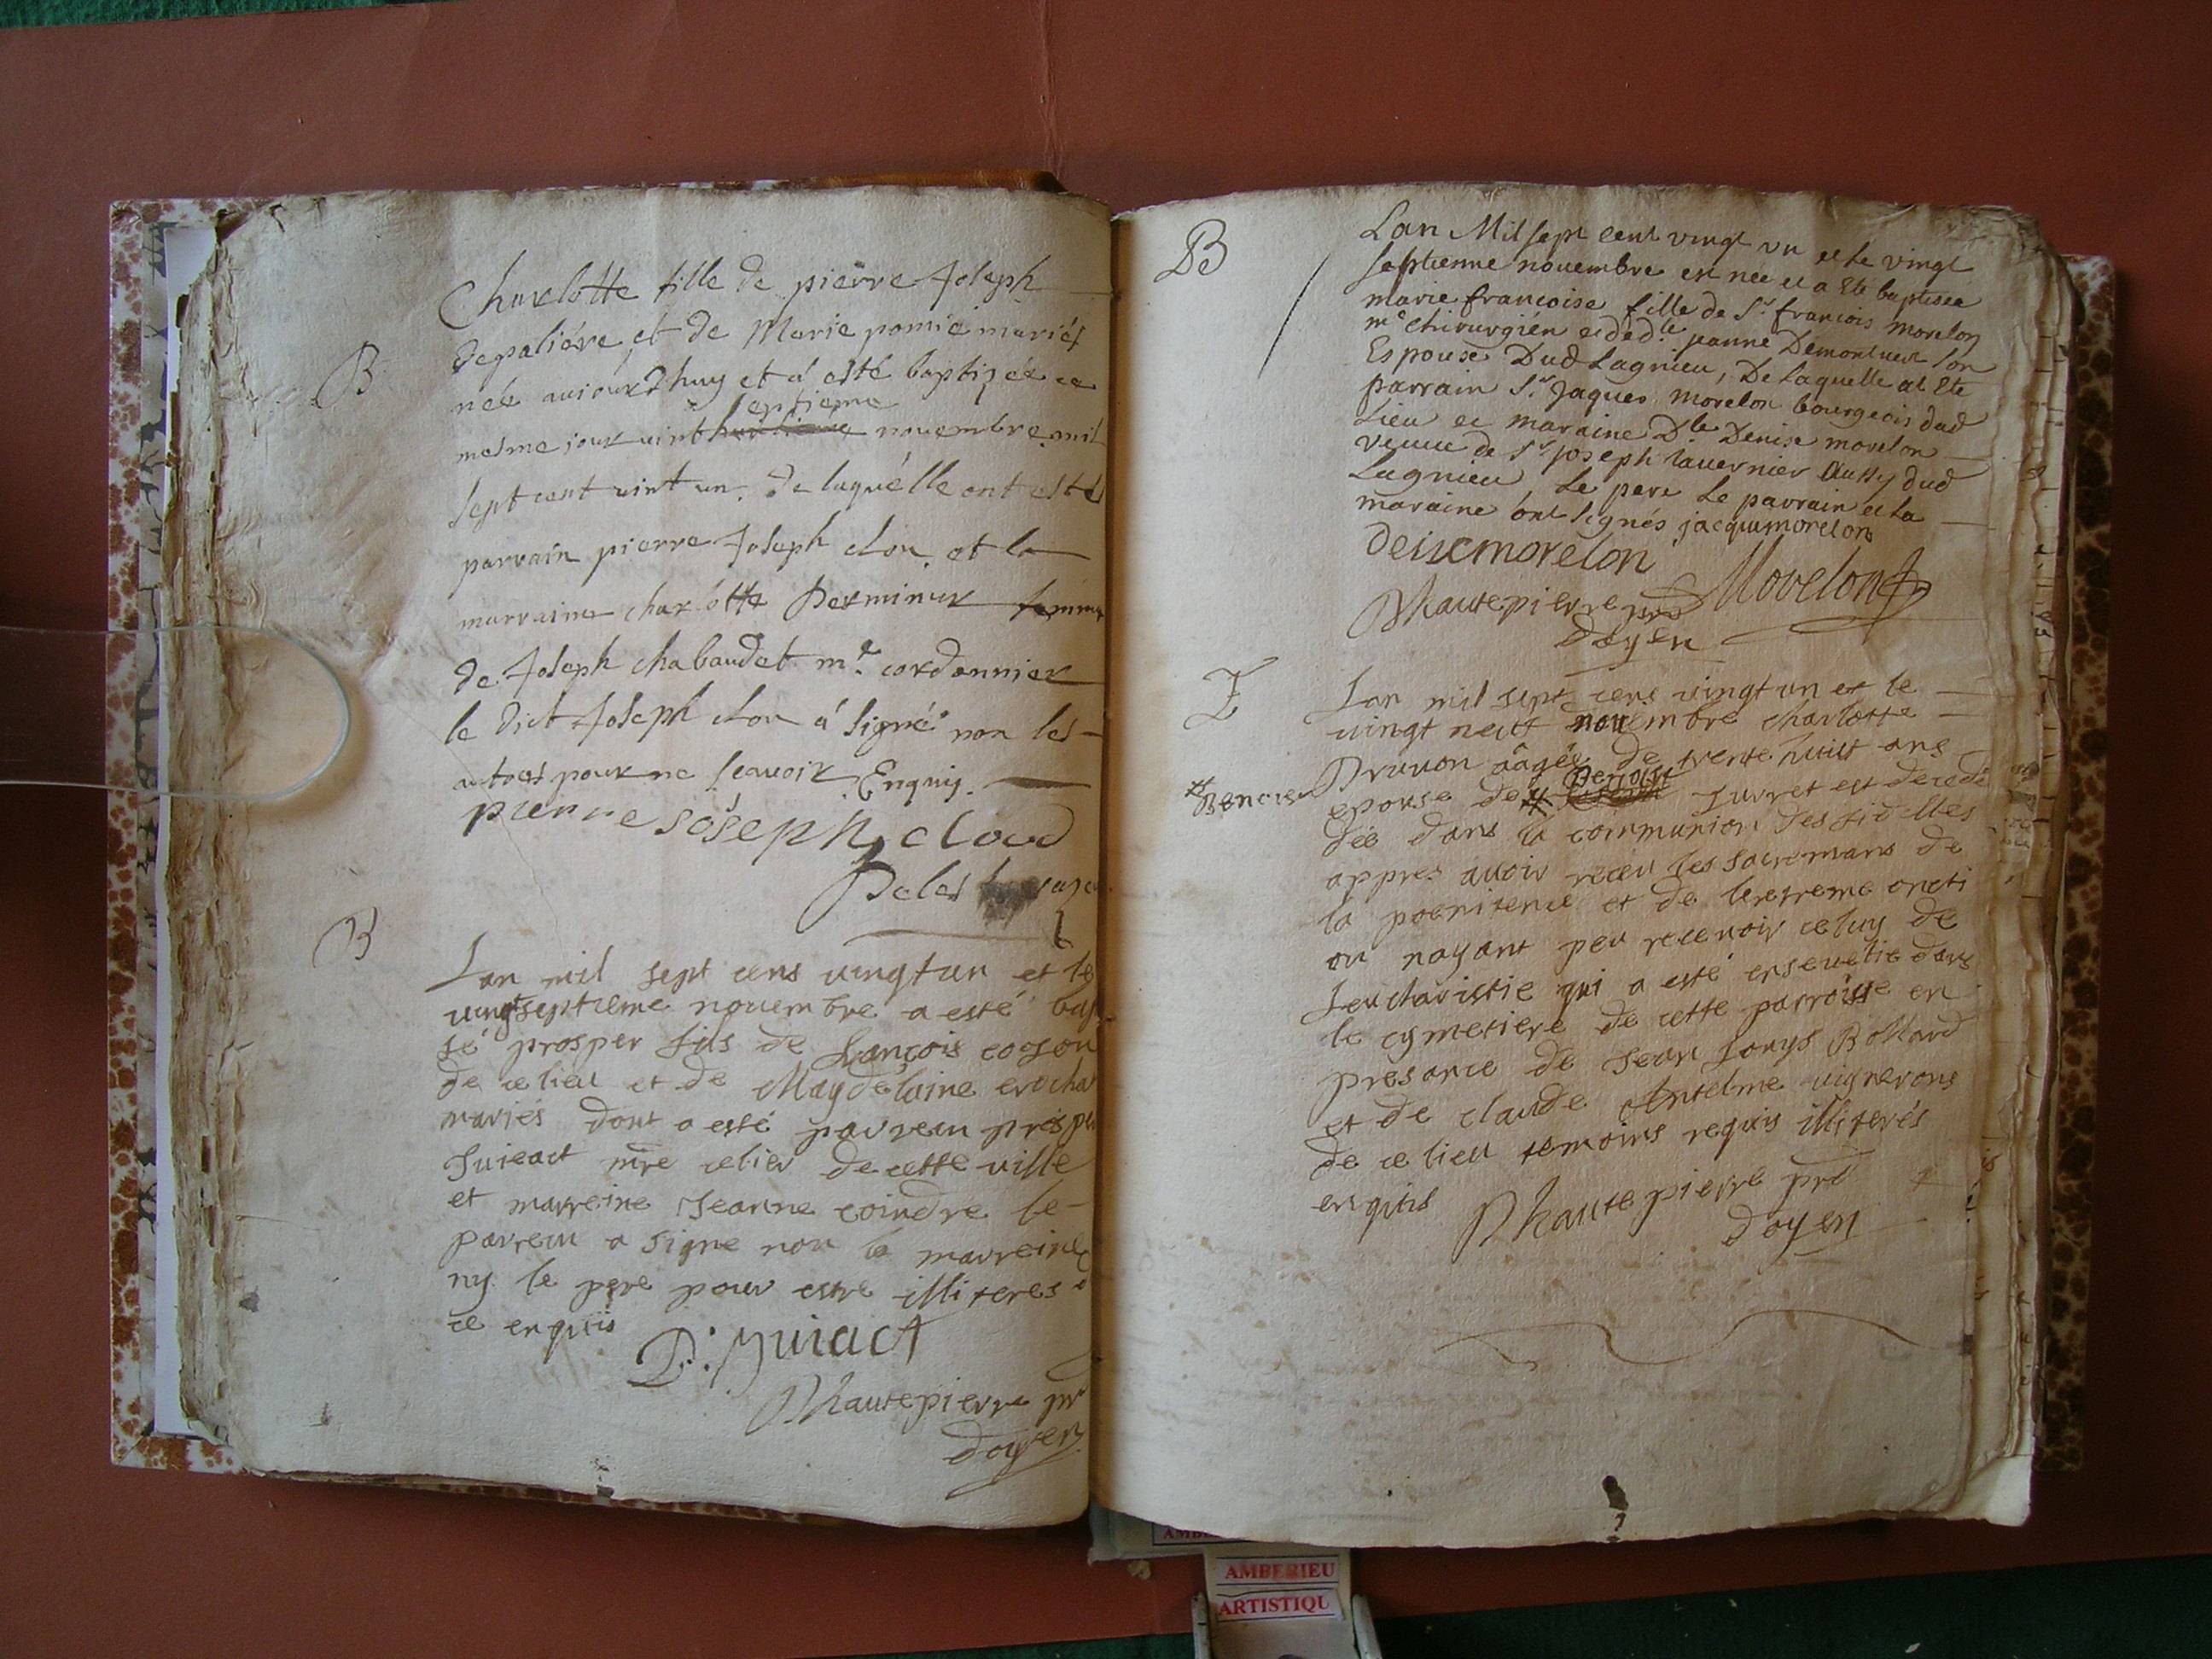 B
Charlotte fille de pierre Joseph
depaliére et de Marie pomié mariés
née auiourdhuy et á esté baptizée ce
septieme
mesme jour vint novembre mil
sept cent vint un. de laquélle ont estés
parrain pierre Joseph clou et la
marraine charlótte Perminur femme
de Joseph chabaudet me. cordonnier
le dict Joseph clou á signé non les
autres pour ne scauoir Enquis.
pierre Joseph cloud
B
Lan mil sept cens uingt un et le
uingtseptieme nouembre a esté bap
sé prosper fils de francois cogson
de ce lieu et de Magdelaine crochat
mariés dont a esté parrein prosper
Juieact mre celier de cette ville
et marreine Jeanne coindre le
parrein a signe non la marreine
ny le pere pour estre illiteres
ce enquis
P: Juiact
Dhautepierre pr
doyen
B
Lan Mil sept cent vingt vn et le vingt
septienne nouembre est née et a Eté baptisea
marie francoise fille de Sr. francois morelon
me chirurgién et de dle. jeanne Demontuert son
Espouse Dud Lagnieu, De Laquelle at Ete
parrain Sr. Jaques morelon bourgeois dud
Lieu et maraine Dle Denise morelon
veuue de Sr joseph tauernier Aussy dud
Lagnieu Le pere Le parrain et La
maraine ont signés jacqumorelon
deisemorelon
Morelon
Dhautepierre prd
doyen
E
Lan mil sept cens uingt un et le
uingt neuf nouembre charlotte
Druuon âagée de trente huist ans
Benois
epouse de # Jurret est decedé
dée dans la communion des fidelles
appres auoir receu les sacremans de
la poenitence et de lextreme oncti
on nayant peu receuoir celuy de
Leucharistie qui a esté enseuelie dans
le cymetiere de cette parroisse en
presance de Jean Louys Bollard
et de claude Antelme uignerons
de ce lieu temoins requis illiterés
enquis
Dhautepierre prd
doyen
AMBERIEU
ARTISTIQU